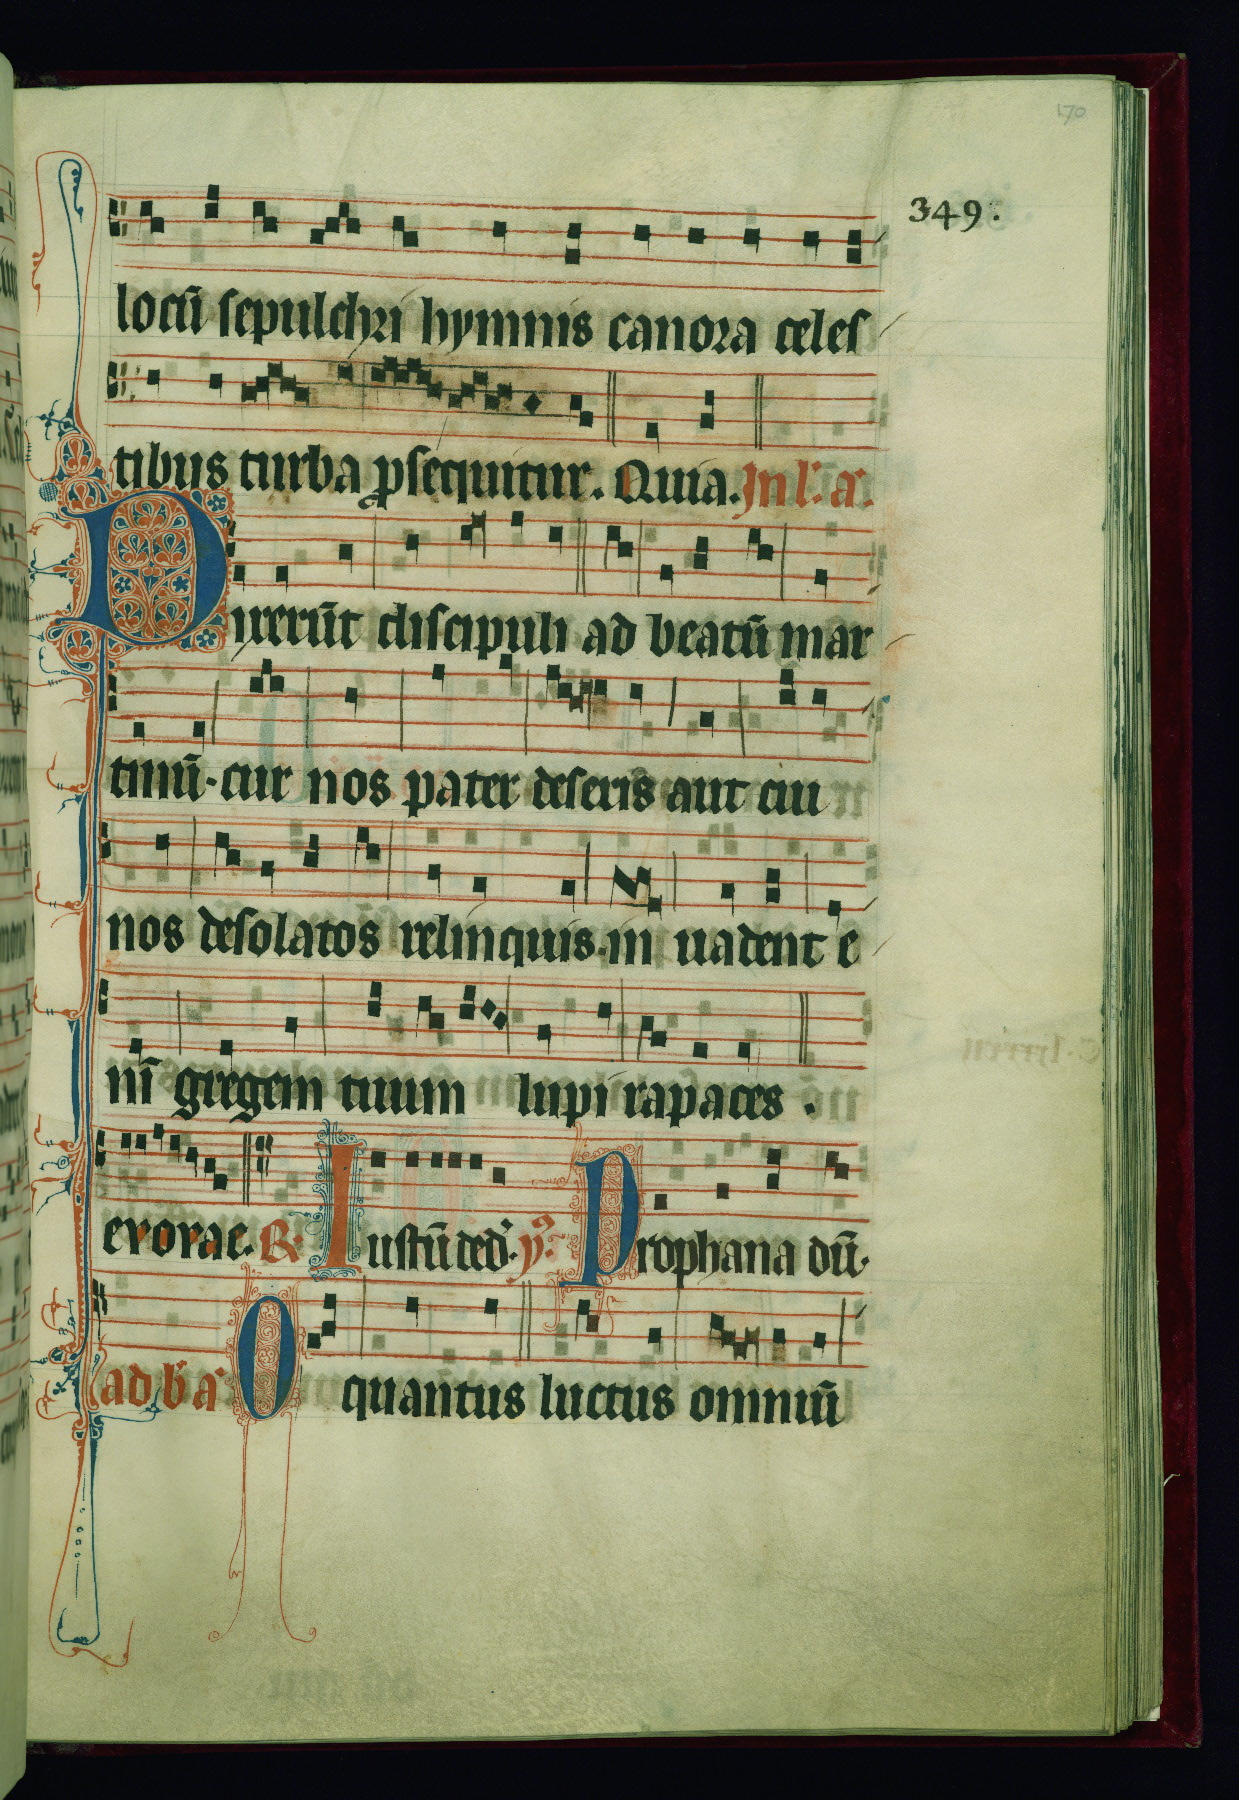 170
349.
locū sepulchri hymnis canora celes
tibus turba ꝓsequitur. Quia. In l'. a'.
Dixerūt discipuli ad beatū mar
tinū. cur nos pater deseris aut cui
nos desolatos relinquis. in uadent e
nī gregem tuum lupi rapaces.
evovae. R. Iustū ded'. ℣. Prophana dū.
ad b' a' O quantus luctus omniū